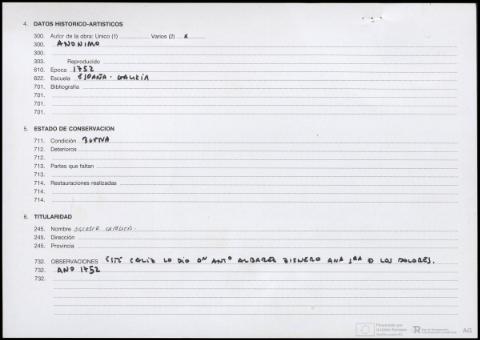 4. DATOS HISTORICO-ARTISTICOS
300. Autor de la obra: Unico (1) Varios (2) x
300. ANONIMO
300.
303. Reproducido
610. Epoca 1752
622. Escuela ESPAÑA - GALICIA
701. Bibliografía
701.
701.
701.
5. ESTADO DE CONSERVACION
711. Condición BUENA
712. Deterioros
712.
713. Partes que faltan
713.
714. Restauraciones realizadas
714.
714.
6. TITULARIDAD
245. Nombre IGLESIA CATOLICA.
245. Dirección
245. Provincia
732. OBSERVACIONES ESTE CALIZ LO DIO Dn ANTº ALBAREZ A Nª SRA D LOS DOLORES.
732. AÑO 1752
732.
Financiado por
la Unión Europea
AG